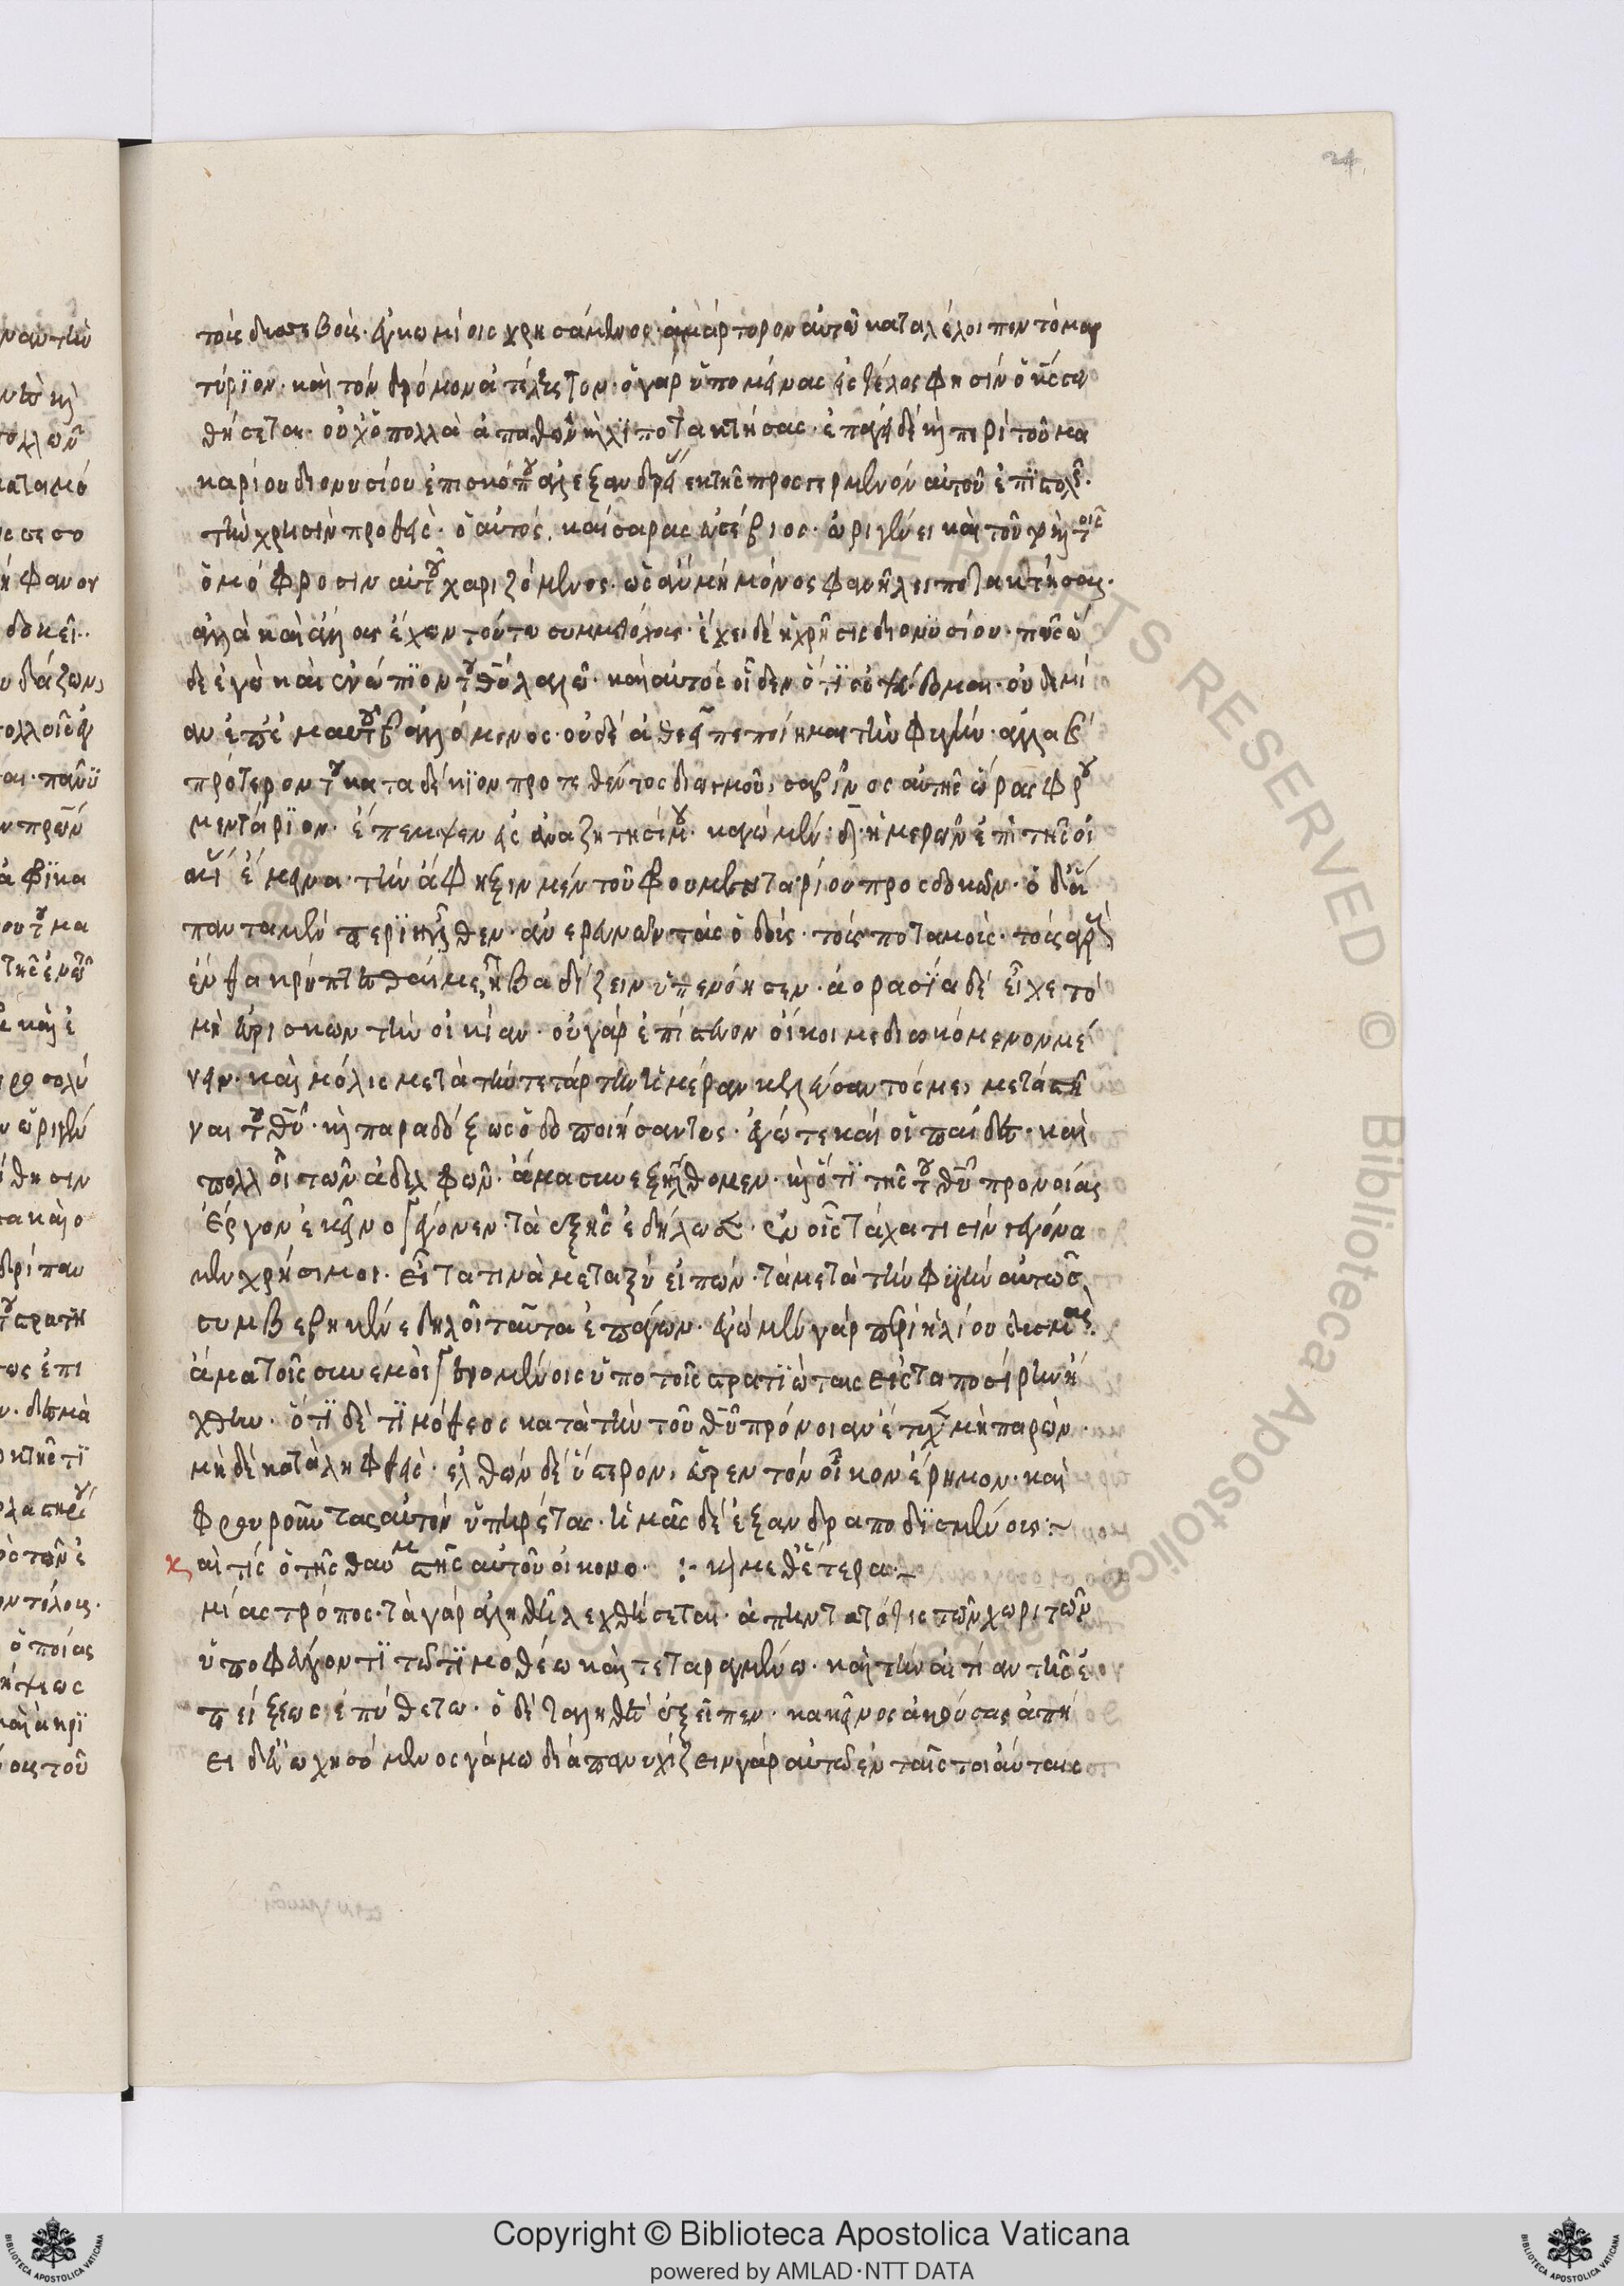 24
τοῖς δυσσεβοῖς· ἐγκωμίοις χρησάμενος· ἀμάρτυρον αὐτοῦ καταλέλοιπεν τὸ μαρ
τύριον· καὶ τὸν δρόμον ἀτέλεστον· ὁ γὰρ ὑπομείνας εἰς τέλος φησὶν οὗτος σω
θήσεται· οὐχ ὁ πολλὰ παθὼν καὶ λιποτακτήσας· ἐπάγει δὲ καὶ περὶ τοῦ μα
καρίου διονυσίου ἐπισκόπου ἀλεξανδρείας ἐκ τῆς πρὸς γερμανὸν αὐτοῦ ἐπιστολῆς·
τὴν χρῆσιν προθείς· ὁ αὐτός καισαρείας εὐσέβιος· ὠριγένει καὶ τοῦ καὶ τοῖς
ὁμόφροσιν αὐτοῦ χαριζόμενος· ὡς ἂν μὴ μόνος φανῇ λειποτακτήσας·
ἀλλὰ καὶ ἄλλους ἔχων τούτου συμμετόχους· ἔχει δὲ ἡ χρῆσις διονυσίου·
δὲ ἐγὼ καὶ ἐνώπιον τοῦ θεοῦ λαλῶ· καὶ αὐτὸς οἶδεν ὅτι οὐ ψεύδομαι· οὐδεμί
αν ἐπ' ἐμαυτοῦ βαλλόμενος· οὐδὲ ἀθεεὶ πεποίημαι τὴν φυγήν· ἀλλὰ καὶ
πρότερον τοῦ κατὰ δέκιον προτεθέντος διωγμοῦ, σαβῖνος αὐτῆς ὥρας φρου
μεντάριον· ἔπεμψεν εἰς ἀναζήτησίν μου· κἀγὼ μὲν· δ· ἡμερῶν ἐπὶ τῆς οἰ
κίας ἔμεινα· τὴν ἄφηξιν μὲν τοῦ φρουμενταρίου προσδοκῶν· ὁ δὲ
πάντα μὲν περιῆλθεν· ἀνερευνῶν τὰς ὁδούς· τοὺς ποταμούς· τοὺς ἀγρούς
ἔνθα κρύπτεσθαί με, ἢ βαδίζειν ὑπενόησεν· ἀορασία δὲ εἶχε τὸ
μὴ εὑρίσκων τὴν οἰκίαν· οὐ γὰρ ἐπίστευον οἴκοι με διωκόμενον μέ
νειν· καὶ μόλις μετὰ τὴν τετάρτην ἡμέραν κελεύσαντός με, μεταστῆ
ναι τοῦ θεοῦ· καὶ παραδόξως ὁδοποιήσαντος· ἐγώ τε καὶ οἱ παῖδες· καὶ
πολλοὶ τῶν ἀδελφῶν· ἅμα συνεξήλθομεν· καὶ ὅτι τῆς τοῦ θεοῦ προνοίας
ἔργον ἐκεῖνο γέγονεν· τὰ ἑξῆς ἐδήλωσεν· ἐν οἷς τάχα τισὶν γεγόνα
μεν χρήσιμοι· εἶτα τινὰ μεταξὺ εἰπών· τὰ μετὰ τὴν φυγὴν αὐτῷ
συμβεβηκέν ἐδηλοῖ ταῦτα ἐπάγων· ἐγὼ μὲν γὰρ περὶ ἡλίου δυσμάς·
ἅμα τοῖς σὺν ἐμοὶ γενομένοις ὑπὸ τοῖς στρατιώταις εἰς ταπόσιριν ἤ
χθην· ὅτι δὲ τιμόθεος κατὰ τὴν τοῦ θεοῦ πρόνοιαν ἔτυχε μὴ παρών·
μὴδὲ καταληφθείς· ἐλθὼν δὲ ὕστερον, εὗρεν τὸν οἶκον ἔρημον· καὶ
φρουροῦντας αὐτὸν ὑπηρέτας· ἡμᾶς δὲ ἐξανδραποδισμένους:~
καὶ τίς ὁ τῆς θαυμαστῆς αὐτοῦ οἰκονο· :- καὶ μεθ' ἕτερα:~
μίας τρόπος· τὰ γὰρ ἀληθῆ λεχθήσεται· ἀπήντα τότις τῶν χωριτῶν
ὑποφεύγοντι τῷ τιμοθέῳ καὶ τεταραγμένῳ· καὶ τὴν αἰτίαν τῆς ἐ
πείξεως ἐπύθετω· ὁ δὲ ταληθὲς ἐξεῖπεν· κἀκεῖνος ἀκούσας ἀπή
ει δὲ εὐωχησόμενος γάμω διαπαννυχίζειν γὰρ αὐτῶ ἐν ταῖς τοιαύταις
Copyright © Biblioteca Apostolica Vaticana
powered by AMLAD·NTT DATA